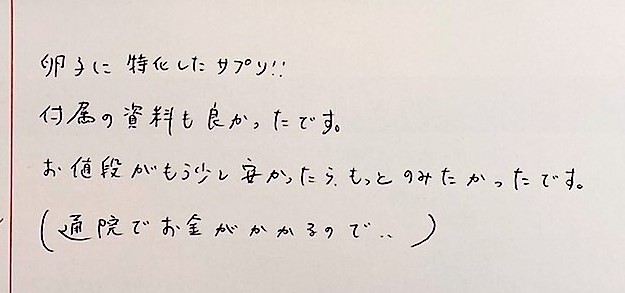 卵子に特化したサプリ!!
付属の資料も良かったです。
お値段がもう少し安かったら、もっとのみたかったです。
(通院でお金がかかるので‥)